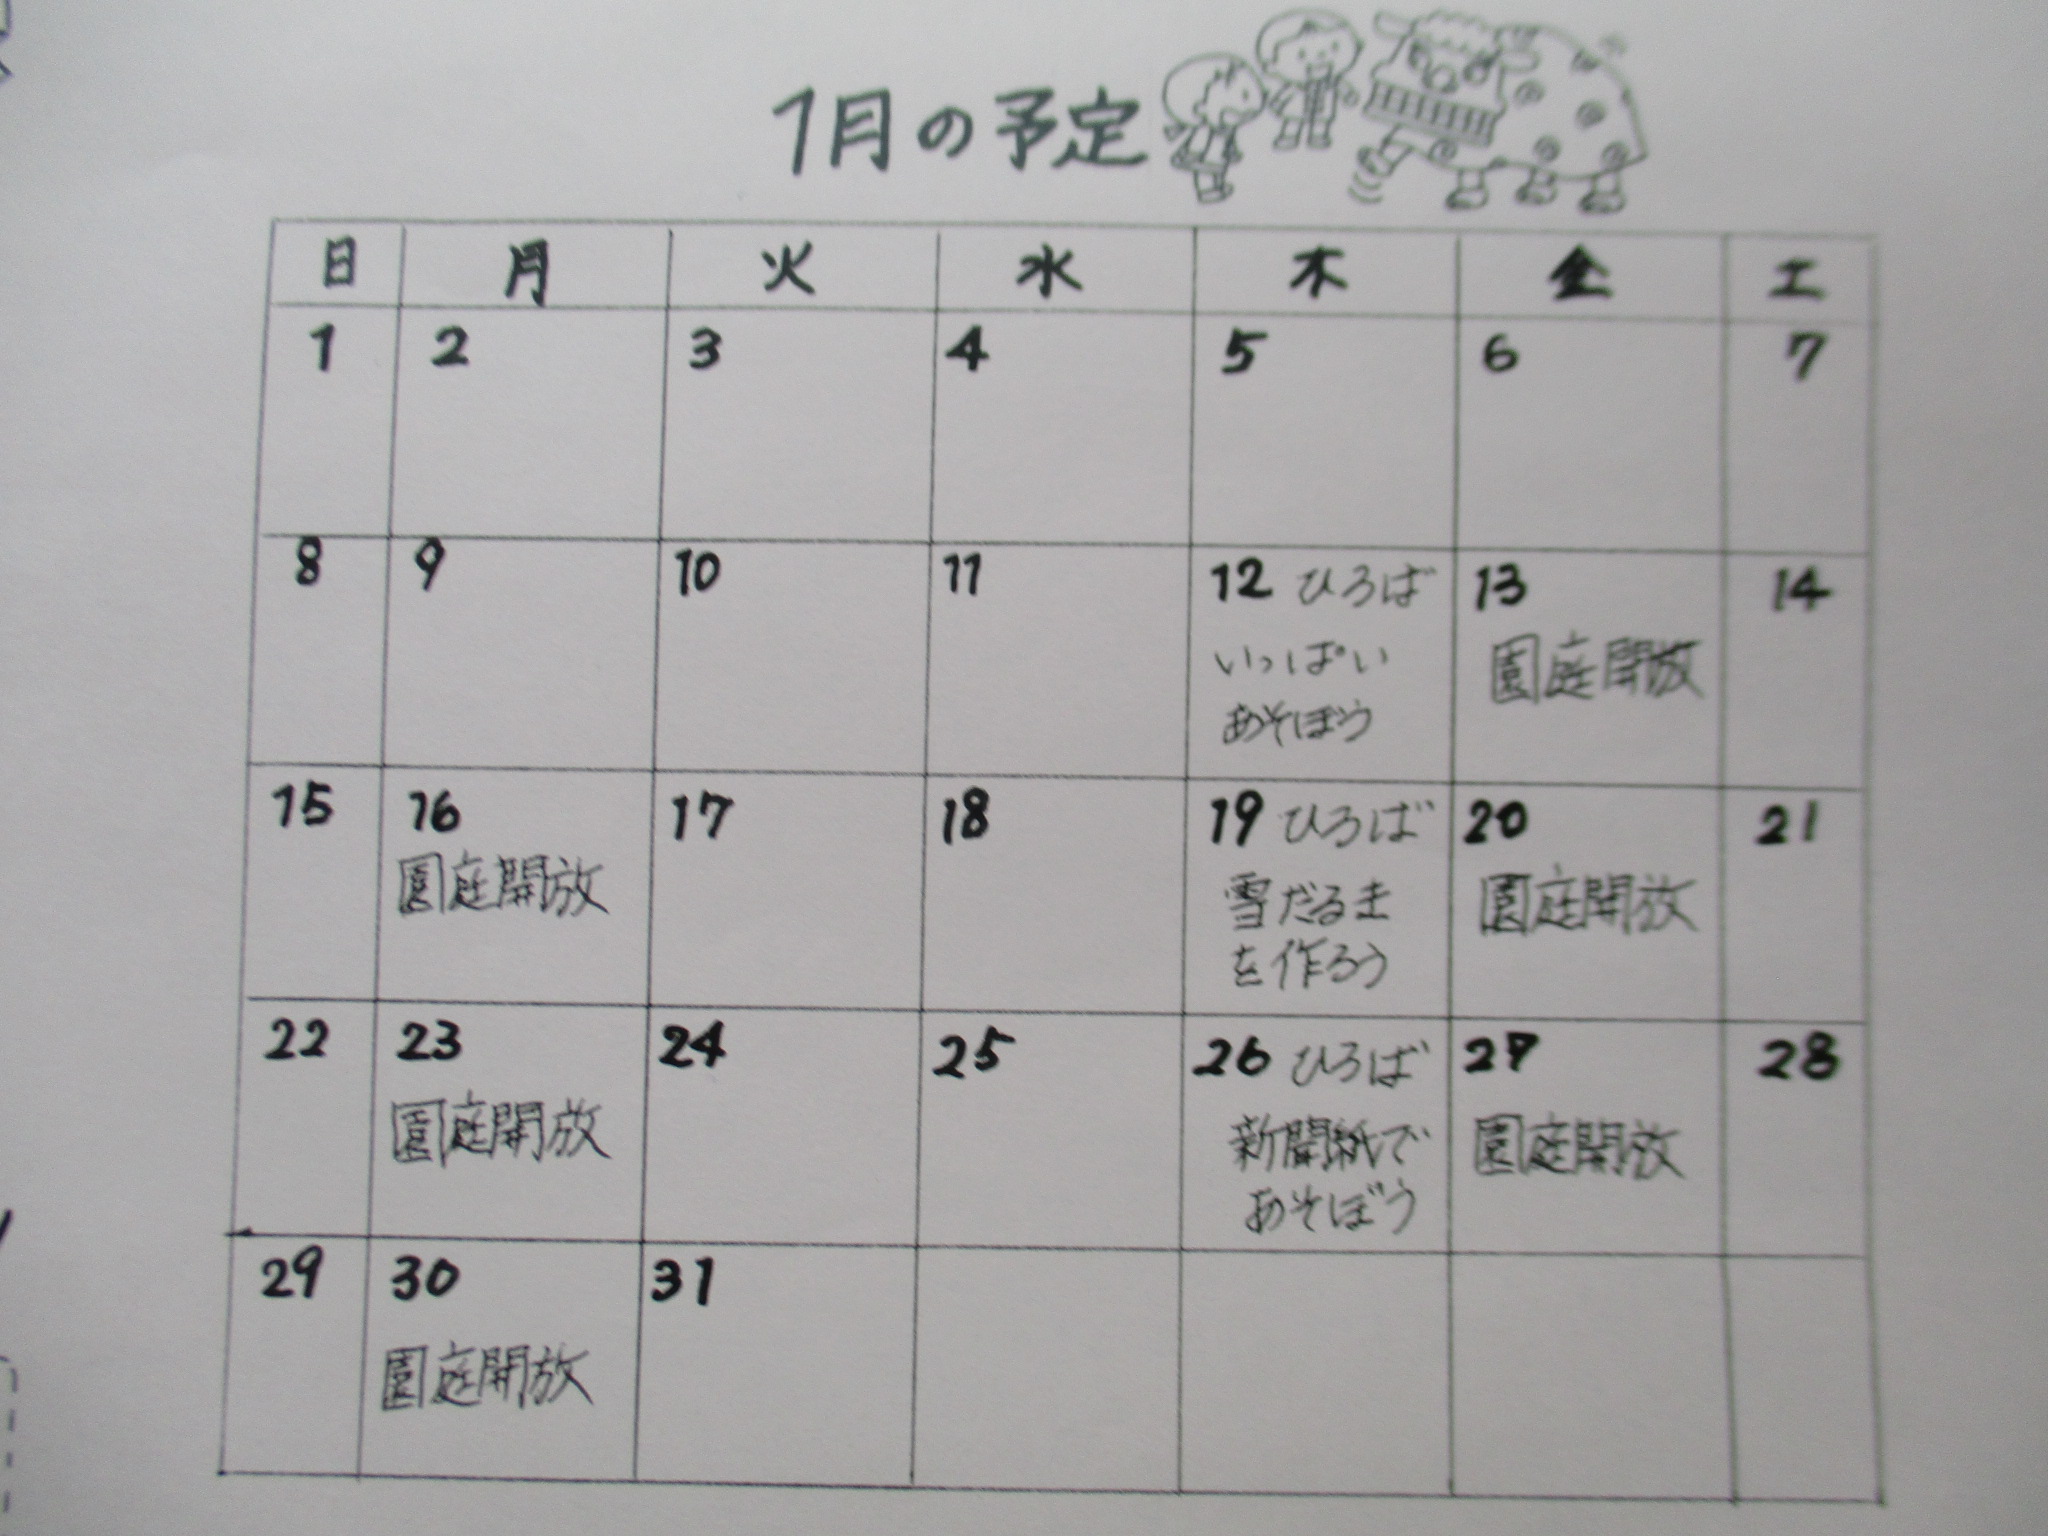 1月の予定
日 月 火 水 木 金 土
1 2 3 4 5 6 7
8 9 10 11 12 ひろば 13 14
いっぱい 園庭開放
あそぼう
15 16 17 18 19 ひろば 20 21
園庭開放 雪だるま 園庭開放
を作ろう
22 23 24 25 26 ひろば 27 28
園庭開放 新聞紙で 園庭開放
あそぼう
29 30 31
園庭開放